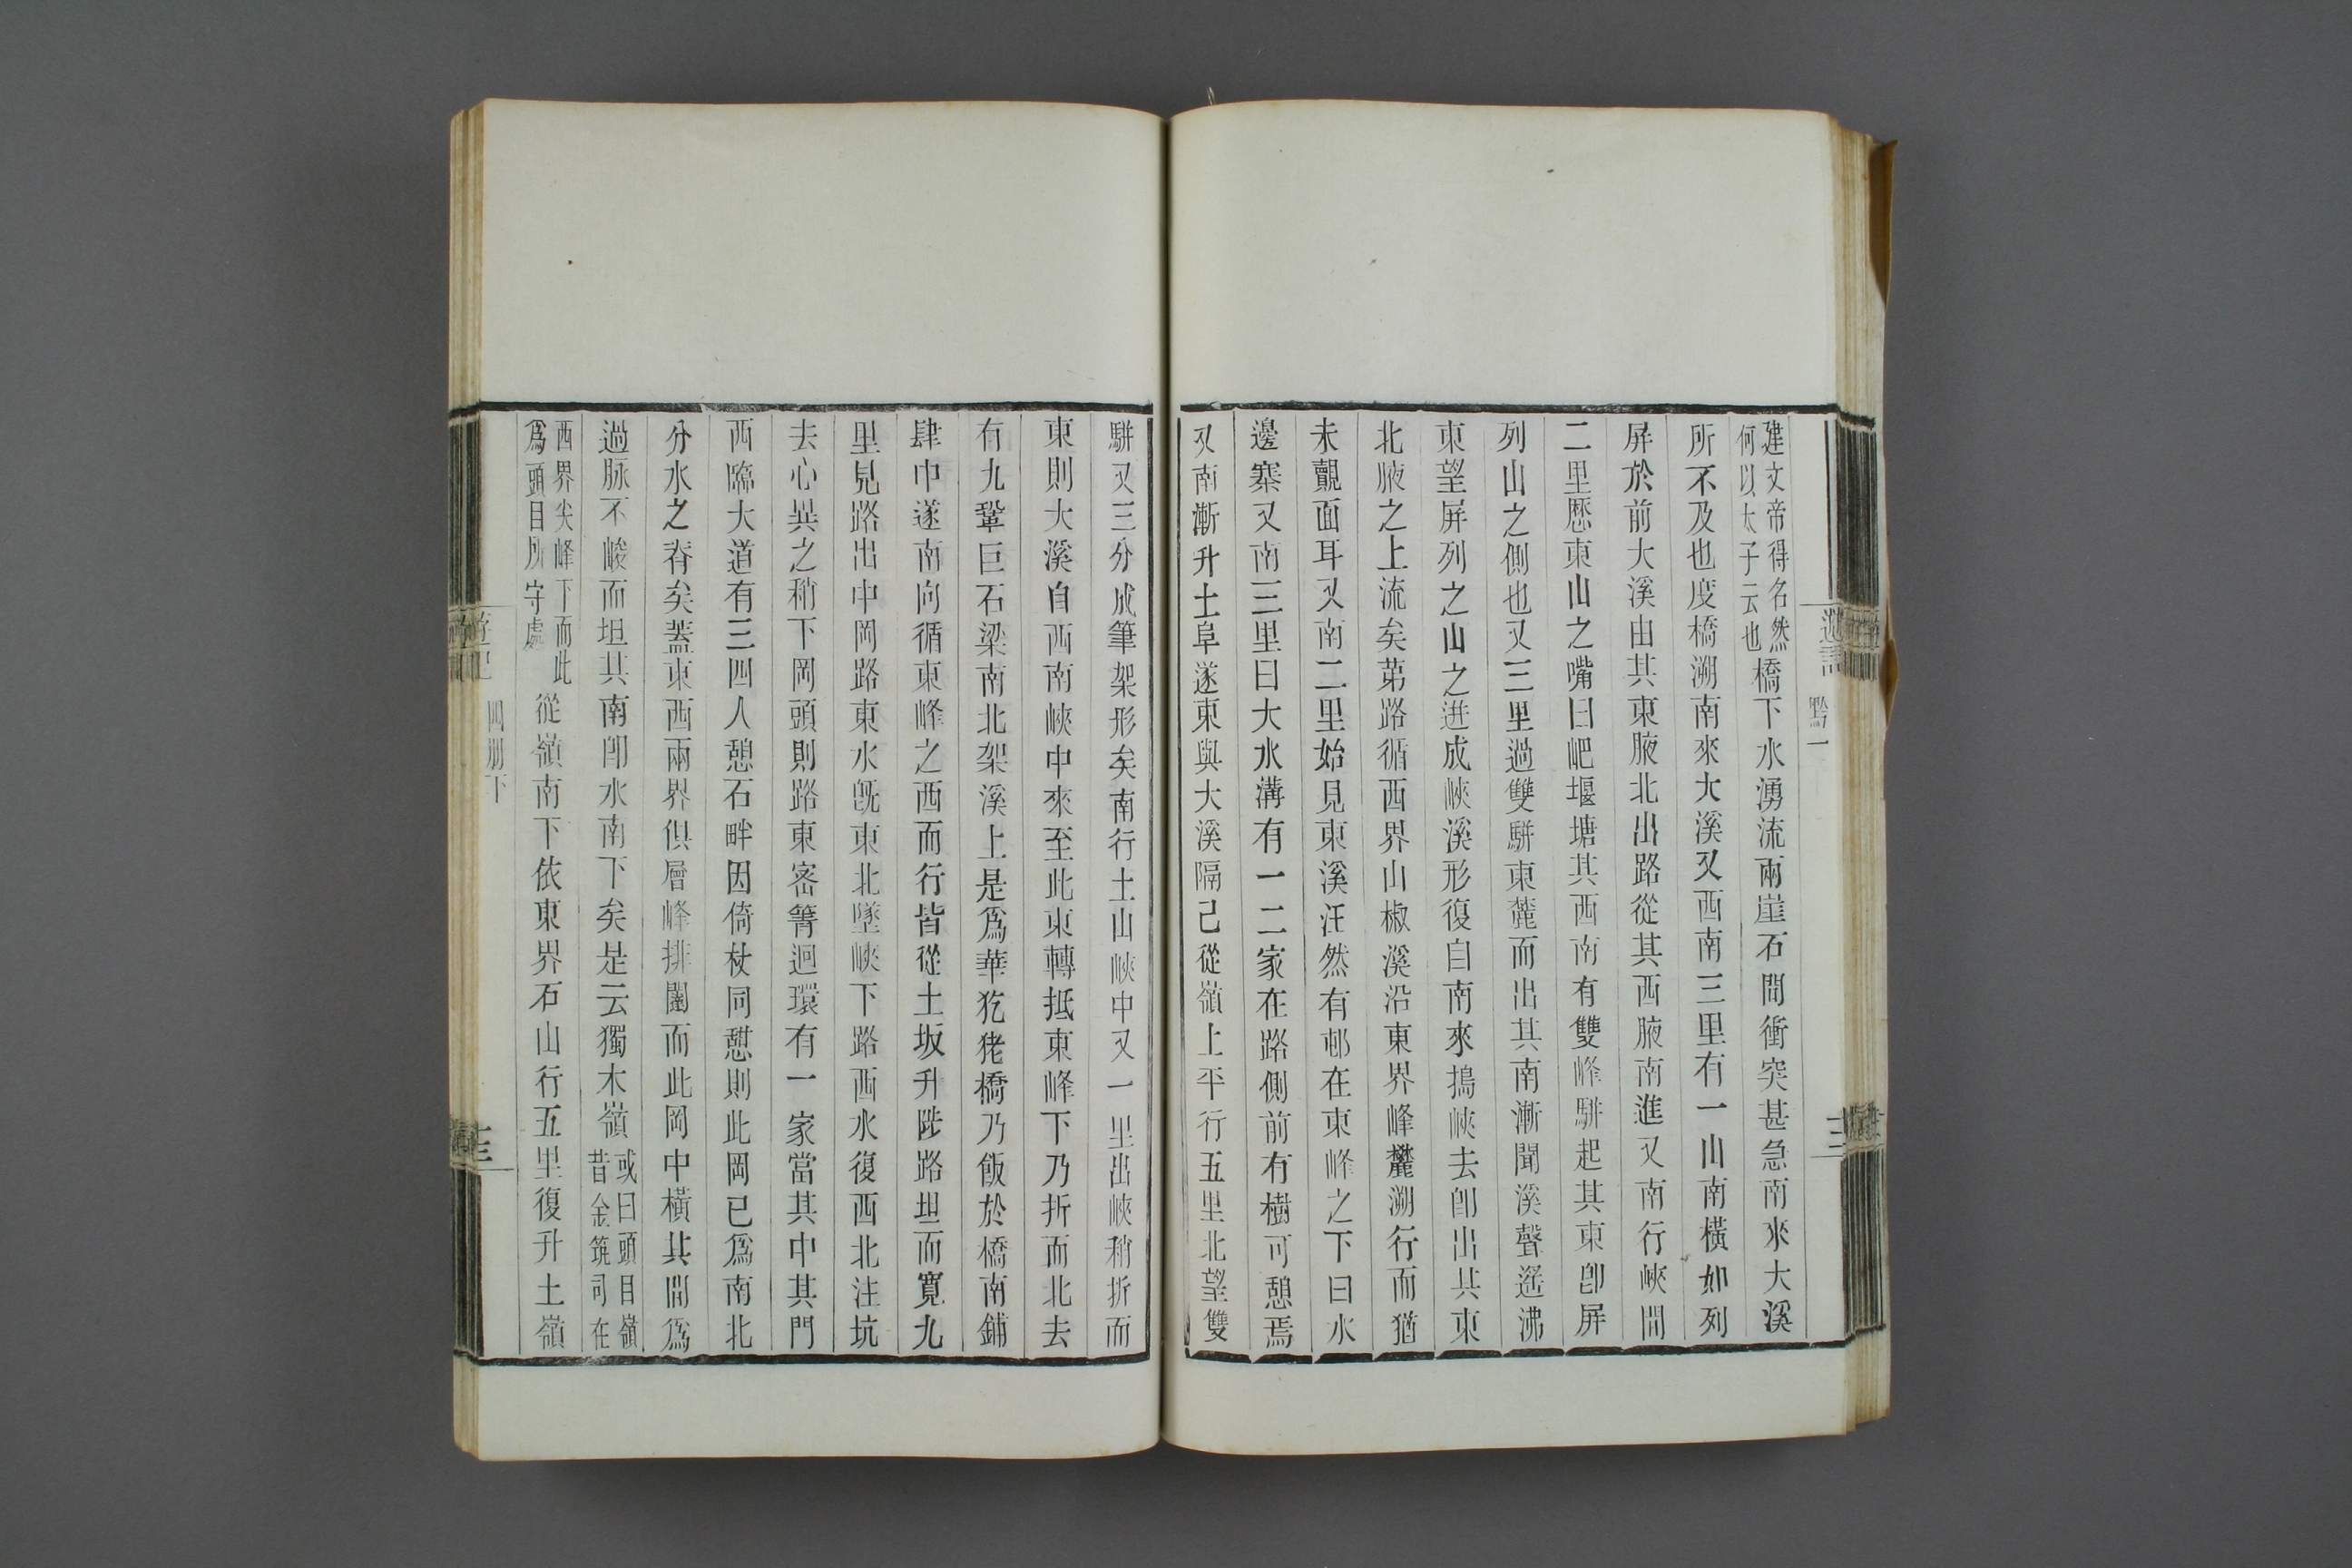 建文帝得名然
何以太子云也
橋下水湧流兩崖石間衝突甚急南來大溪
所不及也度橋溯南來大溪又西南三里有一山南橫如列
屏於前大溪由其東腋北出路從其西腋南進又南行峽間
二里歷東山之嘴曰岜堰塘其西南有雙峰駢起其東卽屏
列山之側也又三里過雙駢東麓而出其南漸聞溪聲遙沸
東望屏列之山之迸成峽溪形復自南來搗峽去卽出其東
北腋之上流矣第路循西界山椒溪沿東界峰麓溯行而猶
未覿面耳又南二里始見東溪汪然有邨在東峰之下曰水
邊寨又南三里曰大水溝有一二家在路側前有樹可憩焉
又南漸升土阜遂東與大溪隔己從嶺上平行五里北望雙
駢又三分成筆架形矣南行土山峽中又一里出峽稍折而
東則大溪自西南峽中來至此東轉抵東峰下乃折而北去
有九鞏巨石梁南北架溪上是爲華犵狫橋乃飯於橋南鋪
肆中遂南向循東峰之西而行皆從土坂升陟路坦而寬九
里見路出中岡路東水旣東北墜峽下路西水復西北注坑
去心異之稍下岡頭則路東密箐迴環有一家當其中其門
西臨大道有三四人憩石畔因倚杖同憇則此岡已爲南北
分水之脊矣蓋東西兩界俱層峰排闥而此岡中橫其間爲
過脉不峻而坦其南卽水南下矣是云獨木嶺
或曰頭目嶺
昔金筑司在
西界尖峰下而此
爲頭目所守處
從嶺南下依東界石山行五里復升土嶺
遊記
四冊下
十三
黔一